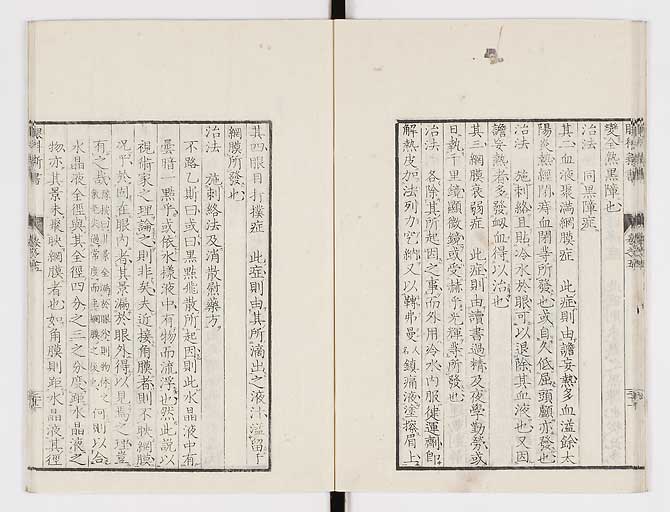 變全然黑障也
治法　同黒障症
其二血液瀰満網膜症　此症則由譫妄熱多血溢餘太
陽炎熱經閉痔血閉等所發也或自久低屈頭顱亦發也
治法　施刺絡且貼冷水於眼可以退除其血液也又因
譫妄熱者多發衂血得以治也
其三網膜衰弱症　此症則由讀書過精及夜學勤勞或
日執千里鏡顯微鏡或受赫乎光輝等所發也
治法　各除其所起因之事而外用冷水內服健運劑即
解熱皮加法列力究納又以鞾弗曼人名鎮痛液塗擦眉上
其四眼目打撲症　此症則由其所滴出之液汁溢留于
網膜所發也
治法　施刺絡法及消散慰藥方
不路乙斯曰或曰黒點飛散所起因則此水晶液中有
曇暗一點乎或依水樣液中有物而流浮也然此說以
視術家之理論之則非矣夫近接角膜者則不映網膜
況乎於固在眼內者其景滿於眼外得以見焉之理豈
有之哉 何則以合
水晶液全徑與其全徑四分之三之分度距水晶液之
物亦其景未聚映網膜者也如角膜則距水晶液其徑